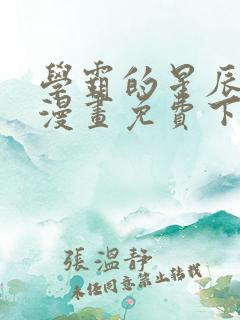 學霸的星辰
漫畫免費下
張溫靜
未经同意禁止转载